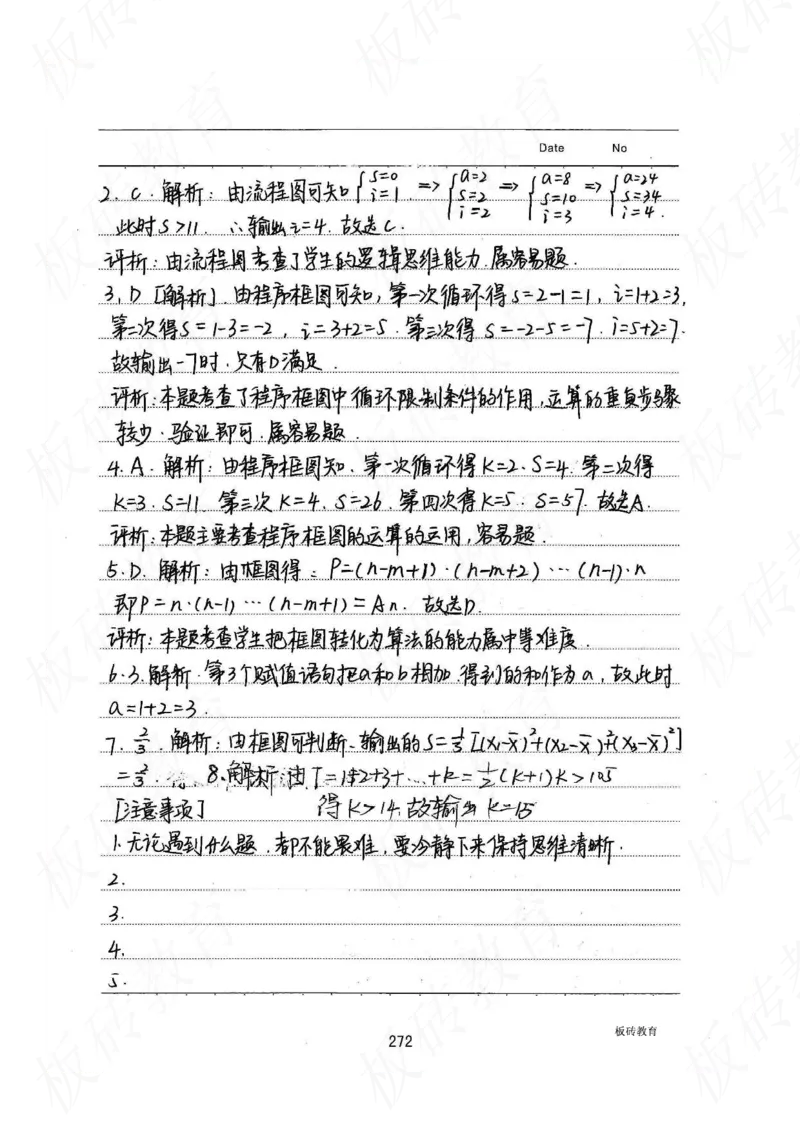 Date No
2. C. 解析: 由流程图可知 { S=0 i=1 => { a=2 S=2 i=2 => { a=8 S=10 i=3 => { a=24 S=34 i=4.
此时S>11. ∴输出i=4. 故选C.
评析: 由流程图考查了学生的逻辑思维能力.属容易题.
3. D [解析]. 由程序框图可知, 第一次循环得 S=2-1=1, i=1+2=3,
第二次得S=1-3=-2, i=3+2=5. 第三次得 S=-2-5=-7. i=5+2=7.
故输出-7时.只有D满足.
评析:本题考查了程序框图中循环限制条件的作用,运算的重复步骤
较少.验证即可.属容易题.
4. A. 解析: 由程序框图知. 第一次循环得K=2. S=4. 第二次得
K=3. S=11. 第三次K=4. S=26. 第四次得K=5. S=57. 故选A.
评析:本题主要考查程序框图的运算的运用,容易题.
5. D. 解析: 由框图得: P=(n-m+1)·(n-m+2)…(n-1)·n
即P=n·(n-1)…(n-m+1)=An. 故选D.
评析: 本题考查学生把框图转化为算法的能力属中等难度.
6. 3. 解析. 第3个赋值语句把a和b相加.得到的和作为a, 故此时
a=1+2=3.
7. 2/3. 解析: 由框图可判断.输出的S=1/3[(x₁-x̄)²+(x₂-x̄)²+(x₃-x̄)²]
=2/3. 8. 解析:由T=1+2+3+…+k=1/2(k+1)k>105
[注意事项] 得K>14,故输出K=15
1. 无论遇到什么题,都不能畏难,要冷静下来保持思维清晰.
2.
3.
4.
5.
板砖教育
272